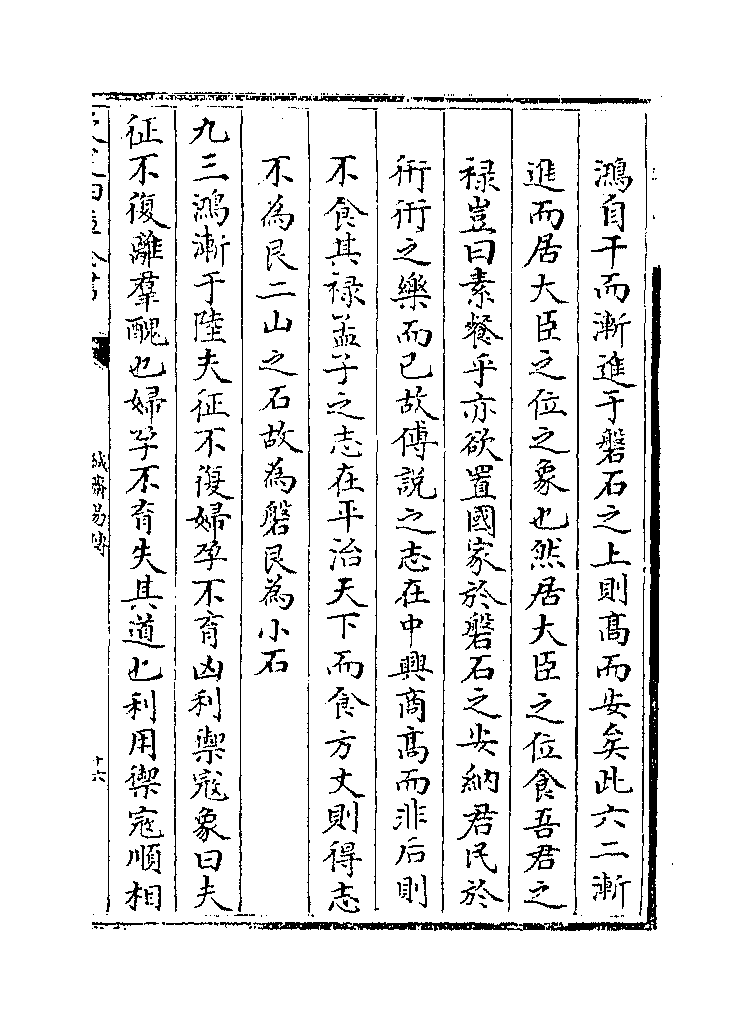 鴻自干而漸進于磐石之上則髙而安矣此六二漸
進而居大臣之位之象也然居大臣之位食吾君之
禄豈曰素餐乎亦欲置國家於磐石之安納君民於
衎衎之樂而已故傅說之志在中興商髙而非后則
不食其禄孟子之志在平治天下而食方丈則得志
不為艮二山之石故為磐艮為小石
九三鴻漸于陸夫征不復婦孕不育凶利禦寇象曰夫
征不復離羣醜也婦孕不育失其道也利用禦寇順相
誠齋易傳
十六